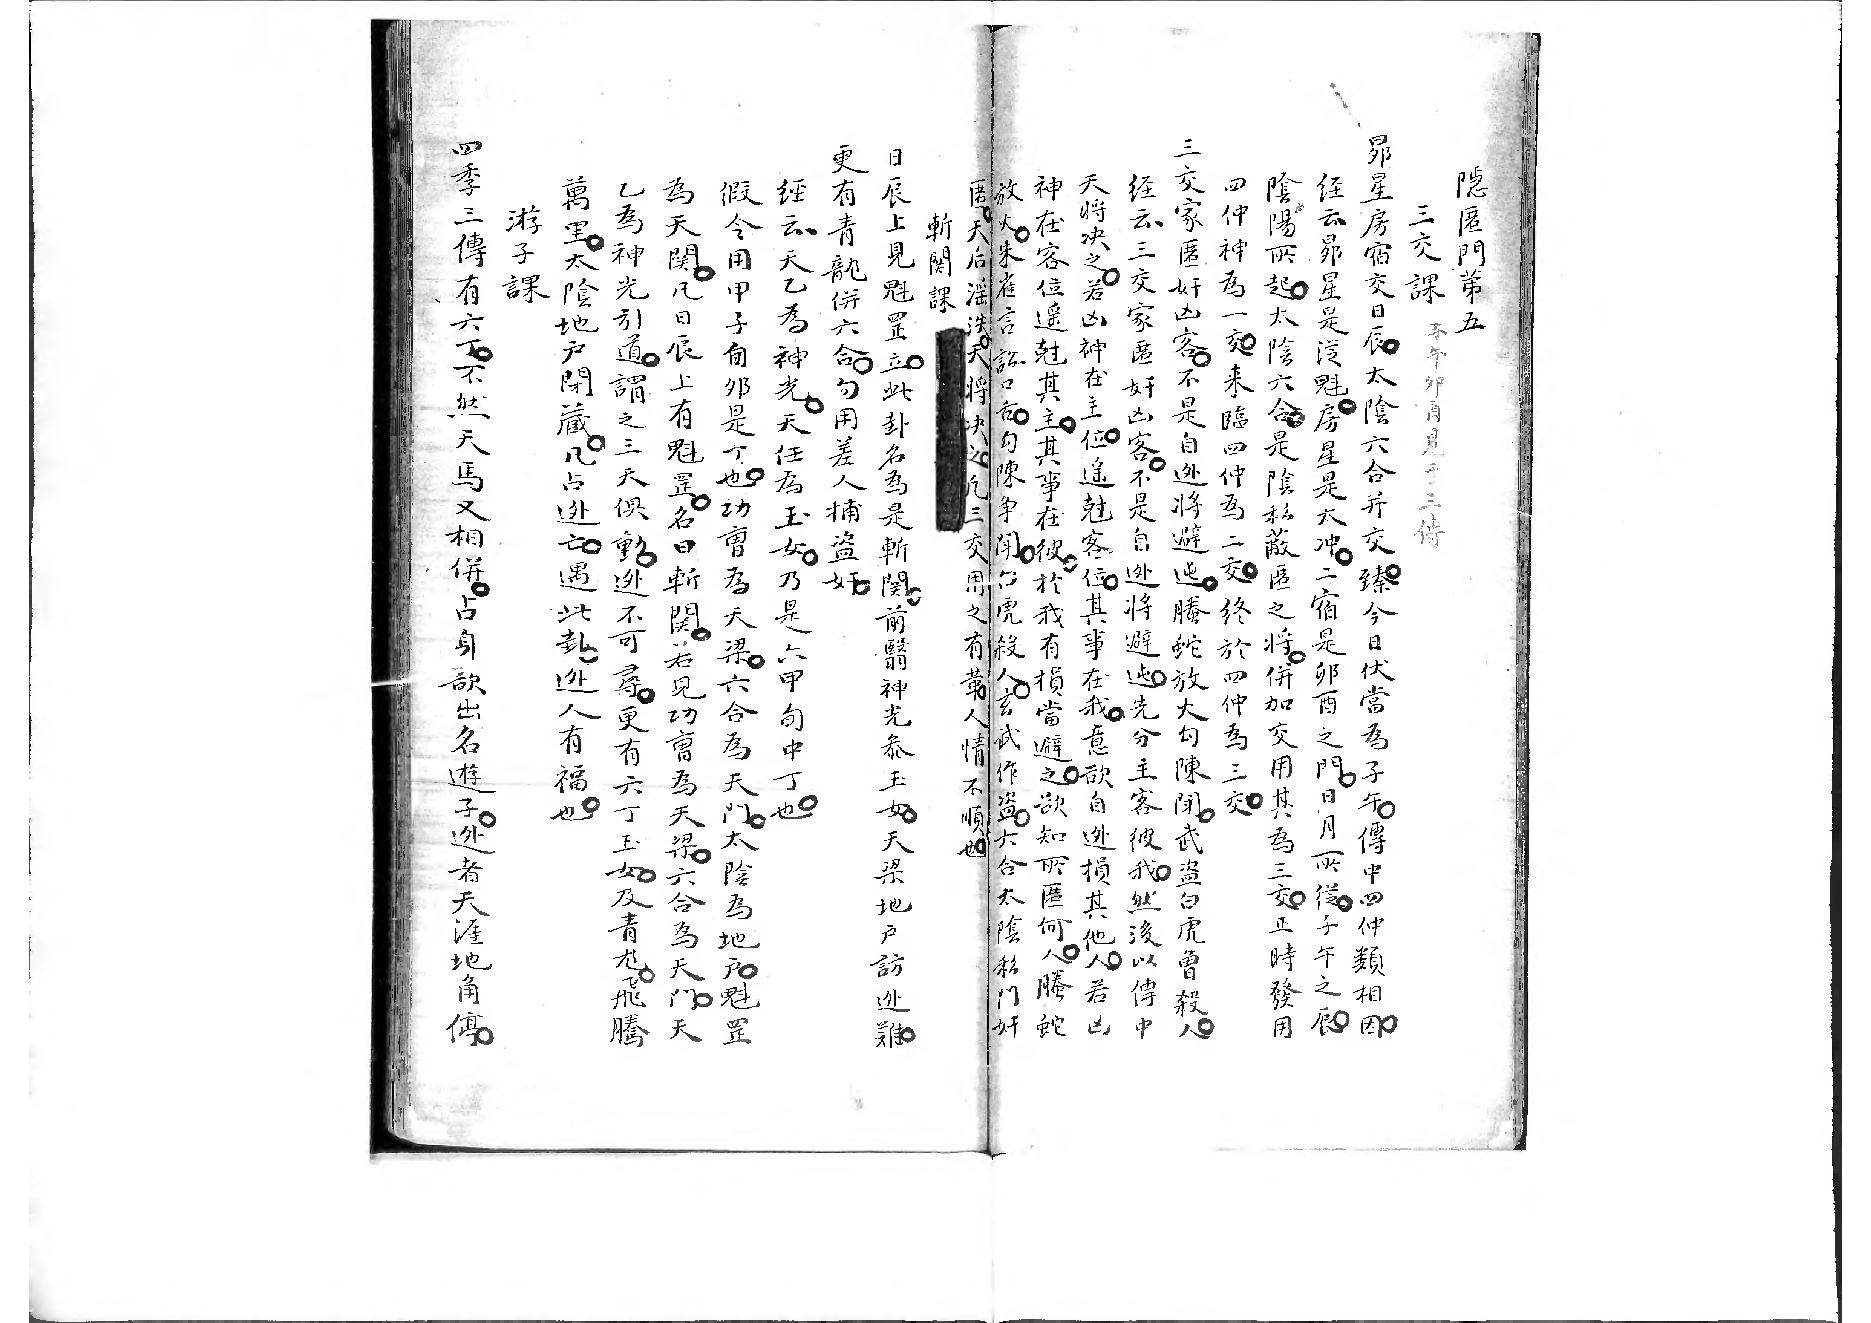 隱匿門第五
三交課 子午卯酉見于三傳
昴星房宿交日辰太陰六合并交臻今日伏當為子午傳中四仲類相因
经云昴星是從魁房星是大冲二宿是卯酉之門日月所從子午之辰
陰陽所起太陰六合是陰私蔽匿之將併加交用其為三交正時發用
四仲神為一交来臨四仲為二交終於四仲為三交
三交家匿奸凶客不是自迯将避迍螣蛇放火勾陳鬥武盗白虎曾殺人
经云三交家匿奸凶客不是自迯将避迍先分主客彼我然後以傳中
天将决之若凶神在主位遙尅客位其事在我意欲自迯損其他人若凶
神在客位遥尅其主其事在彼於我有損當避之欲知所匿何人螣蛇
放火朱雀言訟口舌勾陳争鬧白虎殺人玄武作盗六合太陰私門奸
匿天后淫泆天将决之凡三交用之有葷人情不順也
斬関課
日辰上見魁罡立此卦名為是斬関前翳神光叅玉女天梁地户訪迯難
更有青龍併六合勾用差人捕盗奸
经云天乙為神光天任為玉女乃是六甲旬中丁也
假令用甲子旬卯是丁也功曹為天梁六合為天門太陰為地户魁罡
為天関凡日辰上有魁罡名曰斬関若見功曹為天梁六合為天門天
乙為神光引道謂之三天俱動迯不可尋更有六丁玉女及青龙飛騰
萬里太陰地户閉藏凡占迯亡遇此卦迯人有福也
游子課
四季三傳有六丁不然天馬又相併占身欲出名遊子迯者天涯地角停